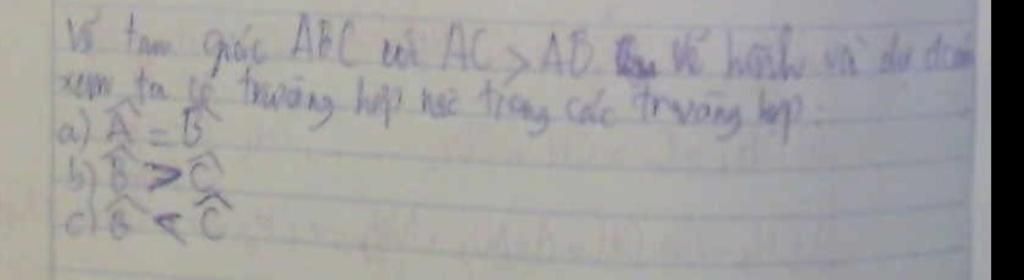 Vẽ tam giác ABC với AC > AB vẽ hình và dự đoán
xem ta có trường hợp nào trong các trường hợp:
a) Â = B̂
b) B̂ > Ĉ
c) B̂ < Ĉ